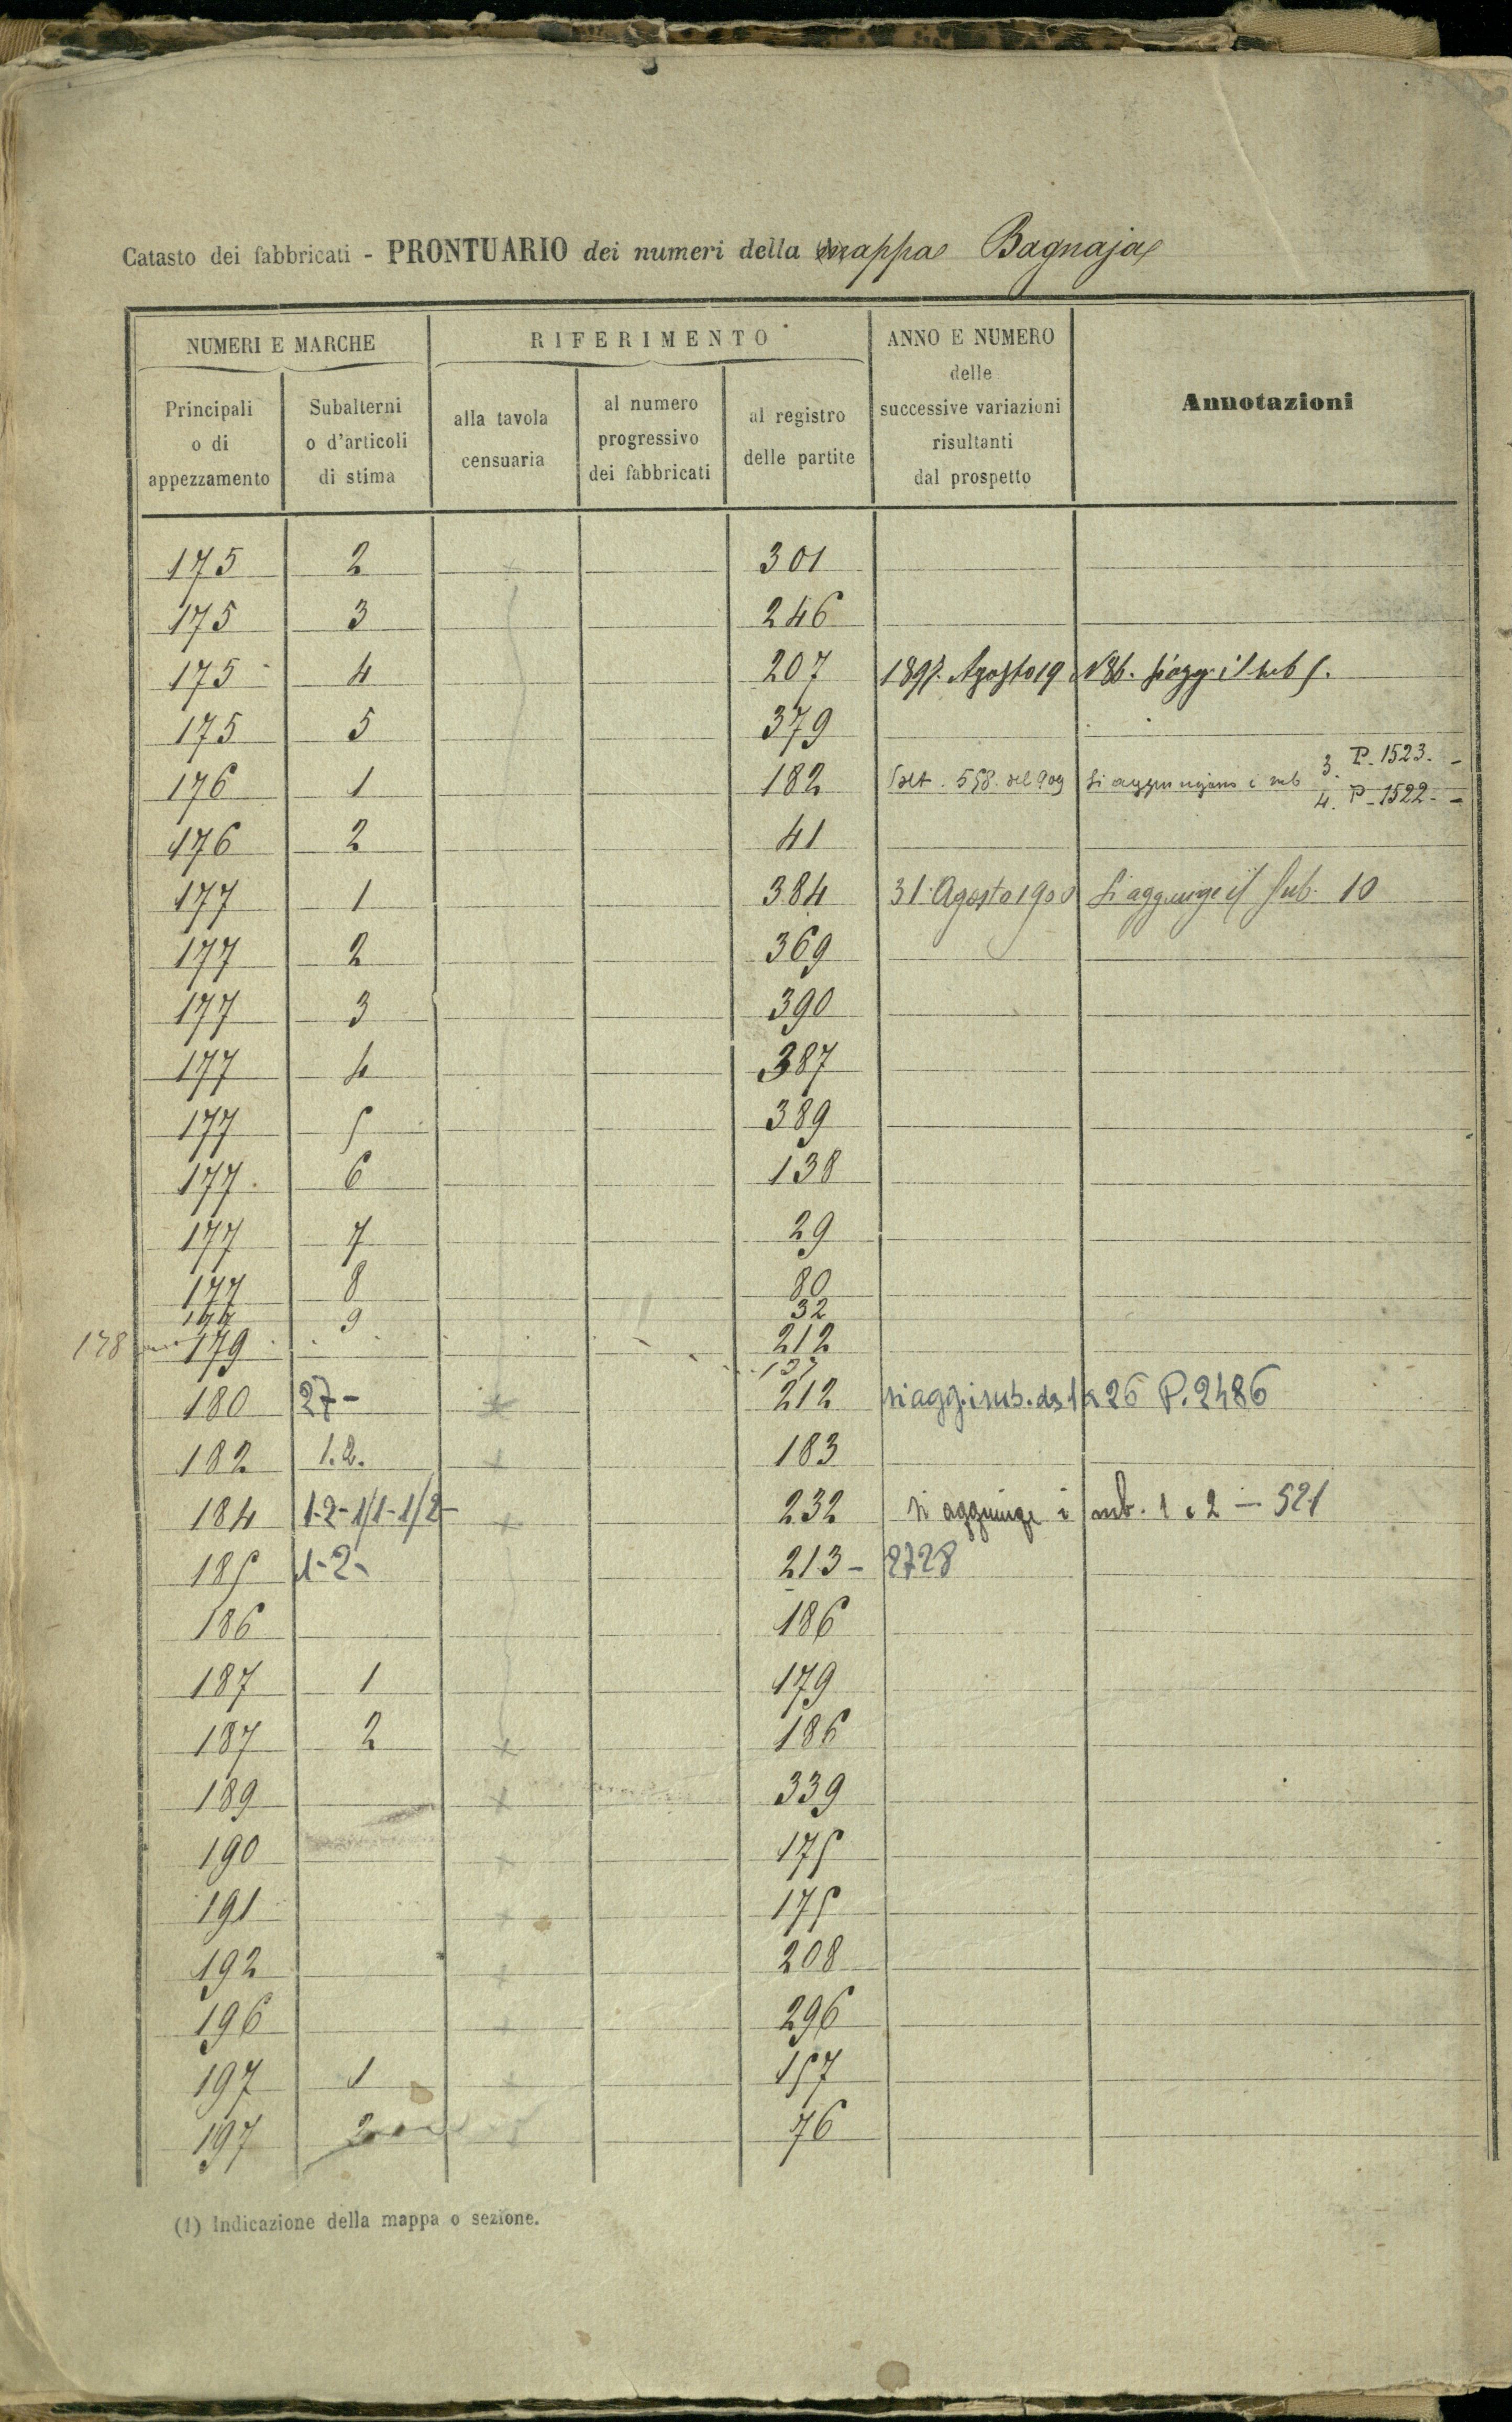 Catasto dei fabbricati - PRONTUARIO dei numeri della mappa Bagnaja
NUMERI E MARCHE
RIFERIMENTO
ANNO E NUMERO
delle
successive variazioni
risultanti
dal prospetto
Annotazioni
Principali
o di
appezzamento
Subalterni
o d'articoli
di stima
alla tavola
censuaria
al numero
progressivo
dei fabbricati
al registro
delle partite
175 2 301
175 3 246
175 4 207 1897. Agosto 19 si agg. il sub 5.
175 5 379
176 1 182 558. del 909 Si aggiungano i sub 3. P. 1523. -
4. P. 1522 - -
176 2 41
177 1 384 31 Agosto 1900 Si aggiunge il Sub. 10
177 2 369
177 3 390
177 4 387
177 5 389
177 6 138
177 7 29
177 8 80
177 9 32
178 179 212
137
180 27 - 212 si agg. i sub. da 1 a 26 P. 2486
182 1.2. 183
184 1-2-1/1-1/2- 232 si aggiunge i sub. 1 e 2 - 521
185 1-2- 213 - 2728
186 186
187 1 179
187 2 186
189 339
190 175
191 175
192 208
196 296
197 1 157
197 2 76
(1) Indicazione della mappa o sezione.